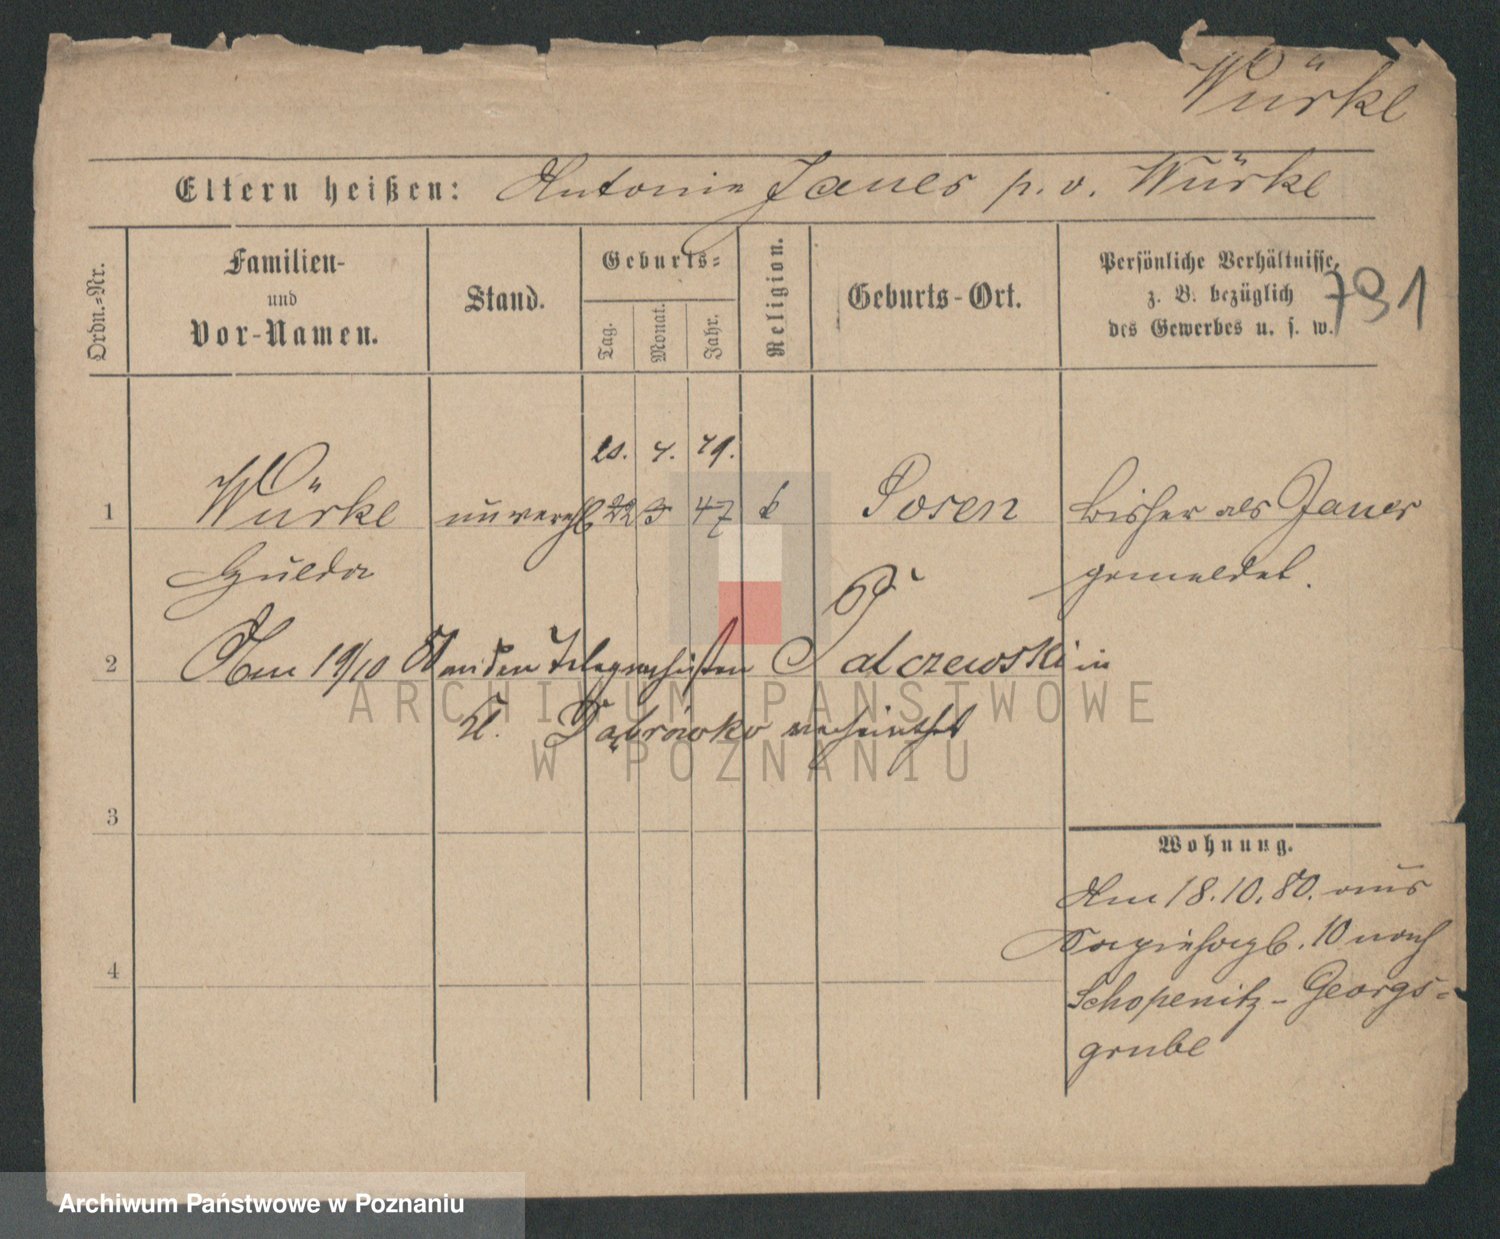 Würkl
Eltern heißen: Antonie Jaues p. v. Würkl
Ordn.-Nr.
Familien-
und
Vor-Namen.
Stand.
Geburts-
Tag.
Monat.
Jahr.
Religion.
Geburts-Ort.
Persönliche Verhältnisse,
z. B. bezüglich
des Gewerbes u. s. w.
791
7. 79.
1 Würkl unverehl 22 3 47 k Posen bisher als Jaues
Hulda gemeldet.
2 Am 19/10 an den Telegraphisten Palczewski in
Kl. Dąbrówko verheirathet
3
Wohnung.
Am 18.10.80. aus
10 nach
4
Schopenitz-Georgs-
grube
ARCHIWUM PAŃSTWOWE
W POZNANIU
Archiwum Państwowe w Poznaniu